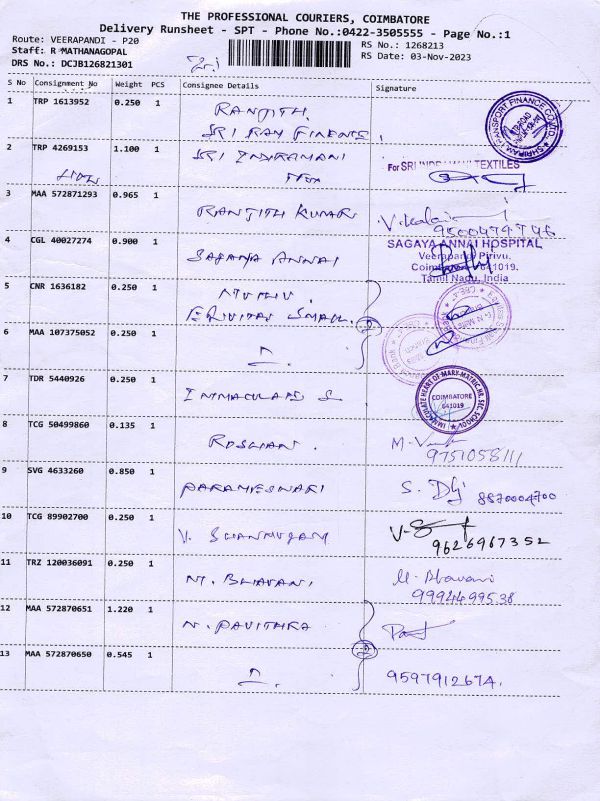 THE PROFESSIONAL COURIERS, COIMBATORE
Delivery Runsheet - SPT - Phone No.:0422-3505555 - Page No.:1
Route: VEERAPANDI - P20
RS No.: 1268213
Staff: R MATHANAGOPAL
RS Date: 03-Nov-2023
DRS No.: DCJB126821301
S No Consignment No Weight PCS Consignee Details Signature
1 TRP 1613952 0.250 1 RANJITH.
SRI RAM FINANCE.
SHRIRAM TRANSPORT FINANCE CO LTD.
2 TRP 4269153 1.100 1 SRI INDRAMANI
TEX
For SRI TEXTILES
3 MAA 572871293 0.965 1 RANJITH KUMAR
4 CGL 40027274 0.900 1 SAGAYA ANNAI
SAGAYA ANNAI HOSPITAL
Veerapandi Pirivu.
Coimbatore 641019.
Tamil Nadu, India
5 CNR 1636182 0.250 1 MUTHU.
6 MAA 107375052 0.250 1
7 TDR 5440926 0.250 1
IMMACULATE HEART OF MARY MATRIC. HR. SEC. SCHOOL
COIMBATORE
641019
8 TCG 50499860 0.135 1 ROSHAN.
9751058111
9 SVG 4633260 0.850 1 PARAMESWARI
S. 8870004700
10 TCG 89902700 0.250 1 V. SHANMUGAM
9626967352
11 TRZ 120036091 0.250 1 M. BHAVANI
M. Bhavani
9994499538
12 MAA 572870651 1.220 1 N. PAVITHRA
13 MAA 572870650 0.545 1
9597912674.